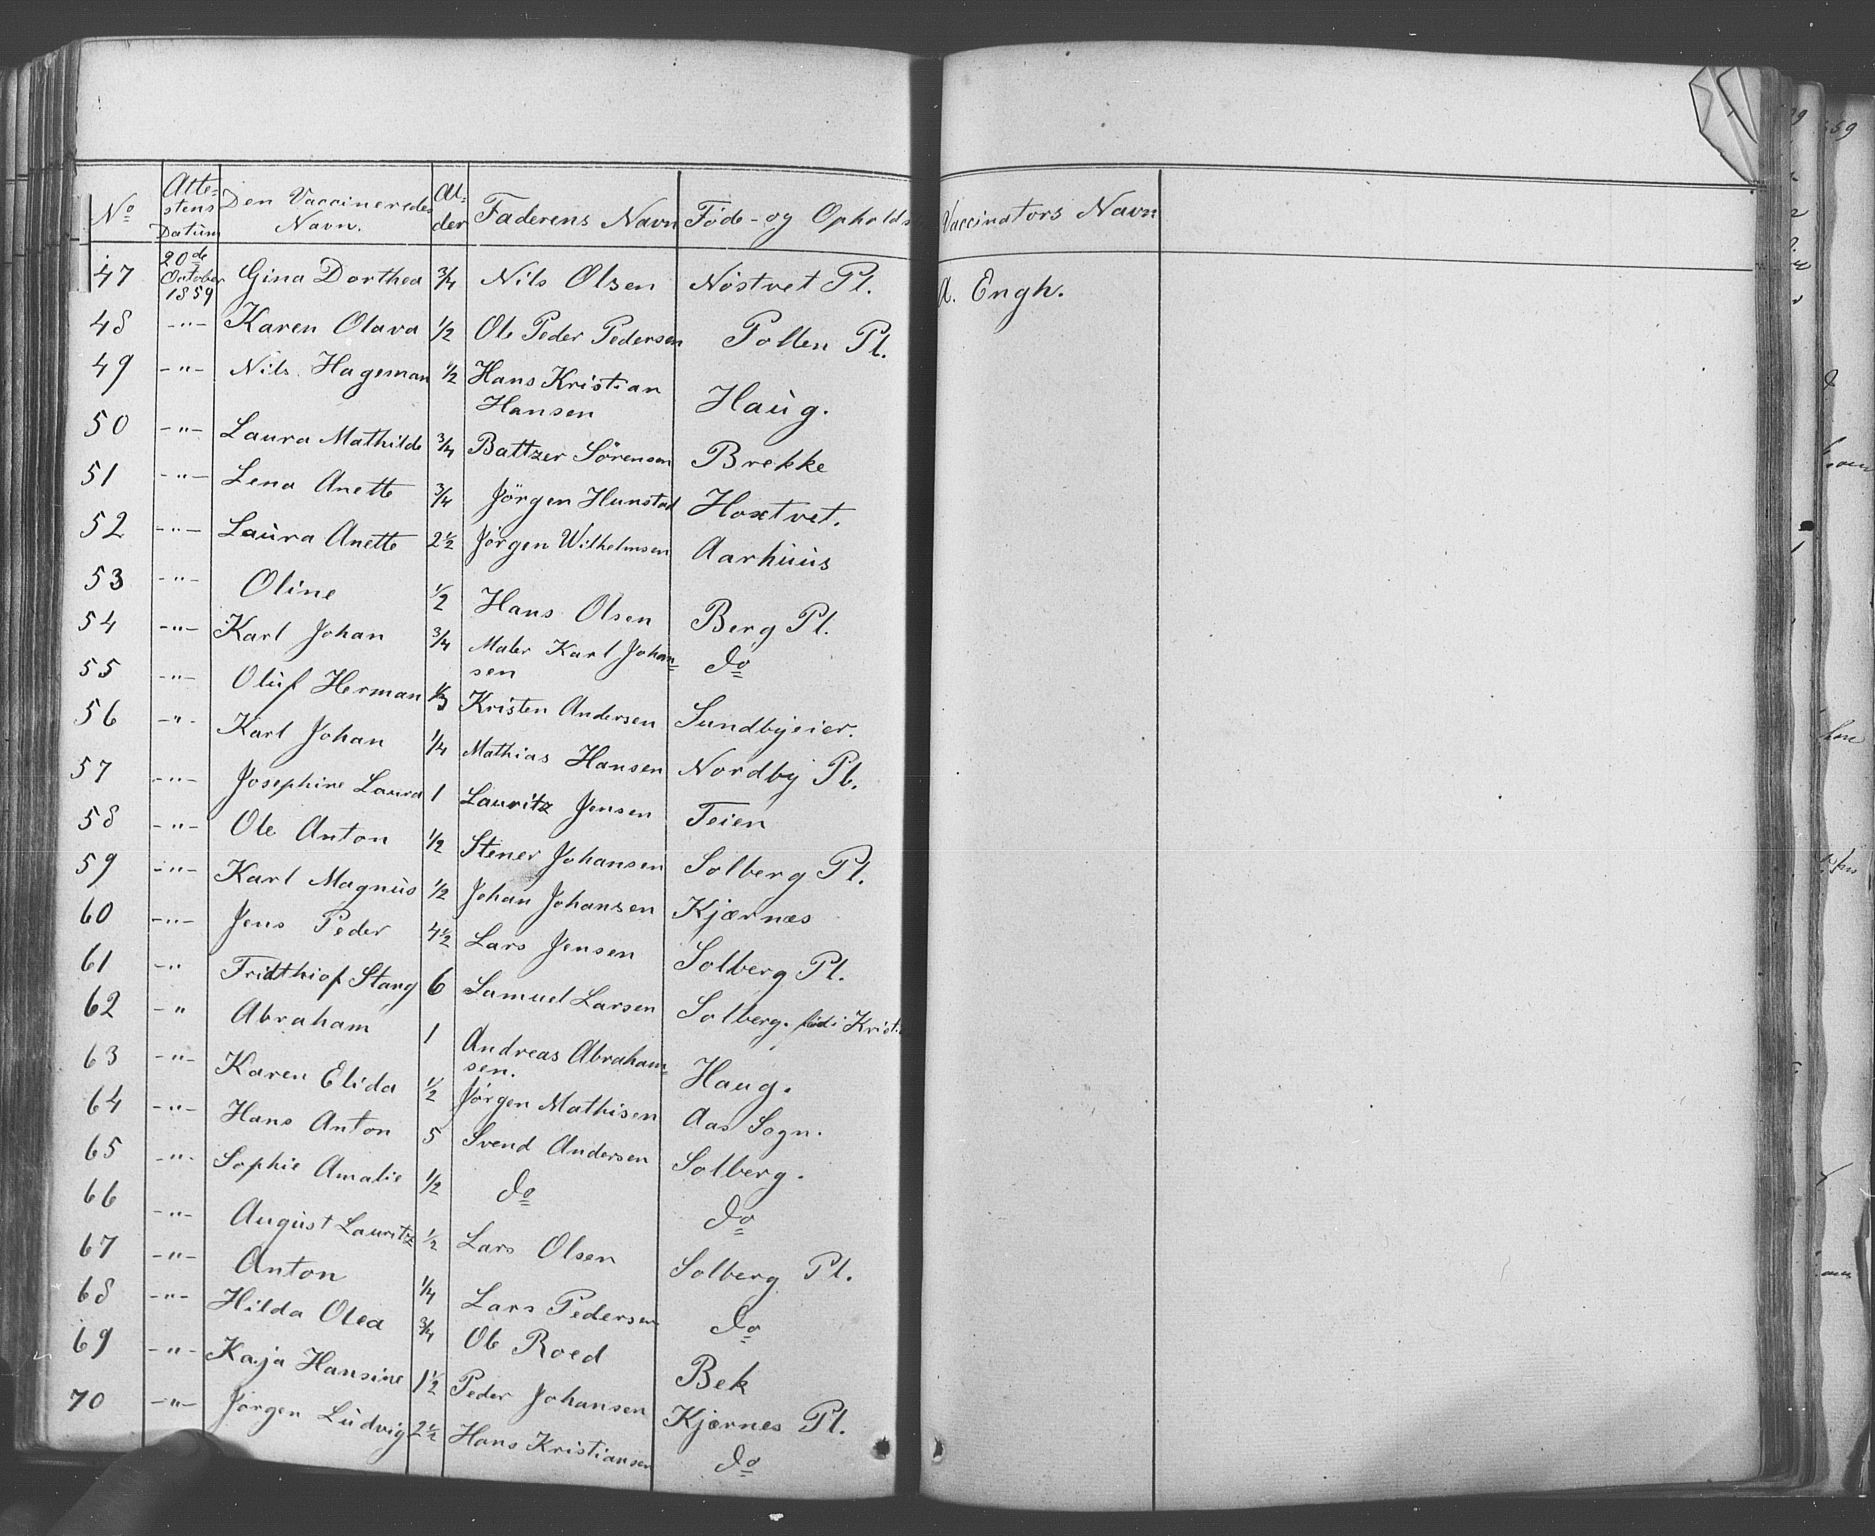 No Attestens Datum Den Vaccineredes Navn. Alder Faderens Navn Føde- og Opholds Vaccinators Navn
47 20de October 1859 Gina Dorthea 3/4 Nils Olsen Nøstvet Pl. A. Engh.
48 -"- Karen Olava 1/2 Ole Peder Pedersen Pollen Pl.
49 -"- Nils Hageman 1/2 Hans Kristian Hansen Haug.
50 -"- Laura Mathilde 3/4 Baltzer Sørensen Brekke
51 -"- Lena Anette 3/4 Jørgen Hunstad Hoxtvet.
52 -"- Laura Anette 2 1/2 Jørgen Wilhelmsen Aarhuus
53 -"- Oline 1/2 Hans Olsen Berg Pl.
54 -"- Karl Johan 3/4 Maler Karl Johansen do
55 -"- Oluf Herman 1/3 Kristen Andersen Sundbyeier.
56 -"- Karl Johan 1/4 Mathias Hansen Nordby Pl.
57 -"- Josephine Laura 1 Lauritz Jensen Teien
58 -"- Ole Anton 1/2 Stener Johansen Solberg Pl.
59 -"- Karl Magnus 1/2 Johan Johansen Kjærnes
60 -"- Jens Peder 4 1/2 Lars Jensen Solberg Pl.
61 -" Fridthiof Stang 6 Samuel Larsen Solberg. fød i Kristi
62 -" Abraham 1 Andreas Abrahamsen. Haug.
63 -"- Karen Elida 1/2 Jørgen Mathisen Aas Sogn.
64 -"- Hans Anton 5 Svend Andersen Solberg.
65 -"- Sophie Amalie 1/2 do do
66 -"- August Lauritz 1/2 Lars Olsen Solberg Pl.
67 -"- Anton 1/4 Lars Pedersen do
68 -"- Hilda Olea 3/4 Ole Roed Bek
69 -"- Kaja Hansine 1 1/2 Peder Johansen Kjærnes Pl.
70 -"- Jørgen Ludvig 2 1/2 Hans Kristiansen do